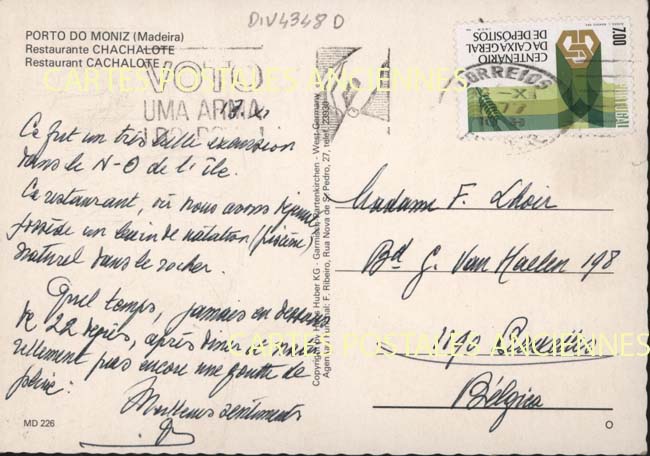 DIV4348 D
PORTO DO MONIZ (Madeira)
Restaurante CHACHALOTE
Restaurant CACHALOTE
VOTO
UMA ARMA
DO POVO!
CENTENÁRIO
DA CAIXA GERAL
DE DEPÓSITOS
7.00
PORTUGAL
CORREIOS
CARTES POSTALES ANCIENNES
17.XI.
Ce fut un très belle excursion
dans le N-O de l'île.
Ce restaurant, où nous avons déjeuné
possède un bassin de natation (piscine)
naturel dans le rocher.
Quel temps, jamais en dessous
de 22 degrés, après dîner
réellement pas encore une goutte de
pluie.
Meilleurs sentiments
Copyright by Huber KG - Garmisch-Partenkirchen - West-Germany
F. Ribeiro, Rua Nova de S. Pedro, 27, telef. 23930
Madame F. Lhoir
Bd G. Van Haelen 198
1190 Bruxelles
Bélgica
CARTES POSTALES ANCIENNES
MD 226
O